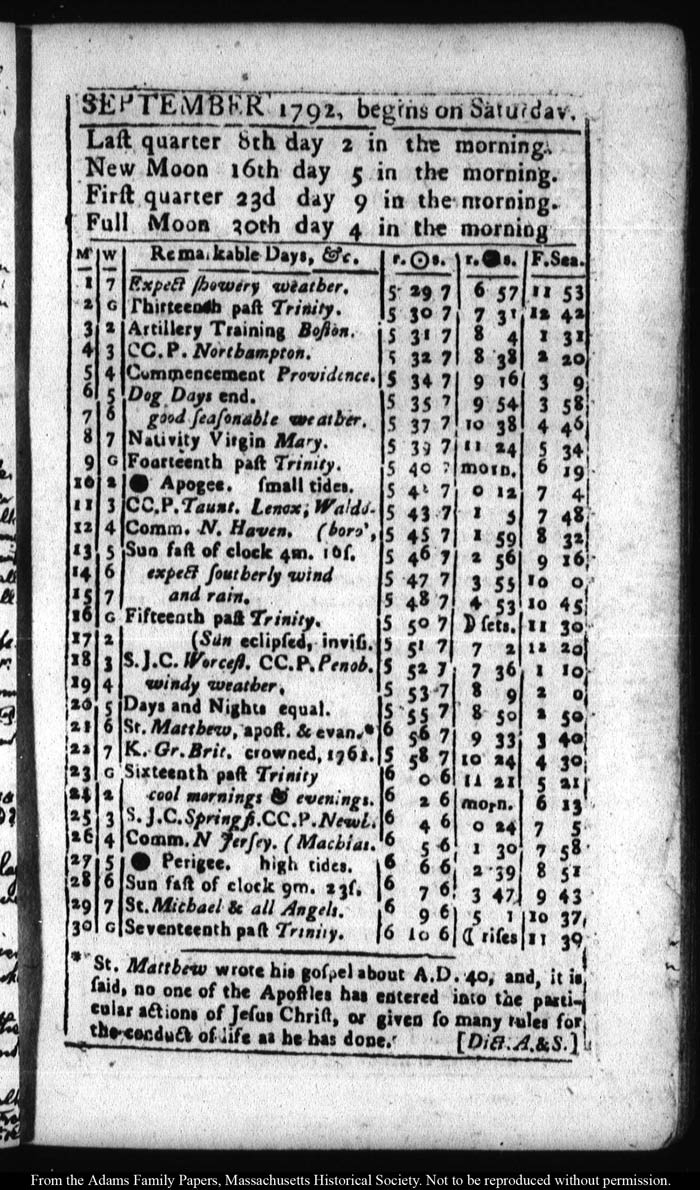 SEPTEMBER 1792, begins on Saturday.
Laſt quarter 8th day 2 in the morning.
New Moon 16th day 5 in the morning.
Firſt quarter 23d day 9 in the morning.
Full Moon 30th day 4 in the morning
M W Remarkable Days, &c. r. ☉ s. r. ● s. F. Sea.
1 7 Expect ſhowery weather. 5 29 7 6 57 11 53
2 G Thirteenth paſt Trinity. 5 30 7 7 31 12 42
3 2 Artillery Training Boſton. 5 31 7 8 4 1 31
4 3 CC.P. Northampton. 5 32 7 8 38 2 20
5 4 Commencement Providence. 5 34 7 9 16 3 9
6 5 Dog Days end. 5 35 7 9 54 3 58
7 6 good ſeaſonable weather. 5 37 7 10 38 4 46
8 7 Nativity Virgin Mary. 5 39 7 11 24 5 34
9 G Foarteenth paſt Trinity. 5 40 7 morn. 6 19
10 2 ● Apogee. ſmall tides. 5 41 7 0 12 7 4
11 3 CC.P. Taunt. Lenox, Waldo- 5 43 7 1 5 7 48
12 4 Comm. N. Haven. (boro', 5 45 7 1 59 8 32
13 5 Sun faſt of clock 4m. 16ſ. 5 46 7 2 56 9 16
14 6 expect ſoutherly wind 5 47 7 3 55 10 0
15 7 and rain. 5 48 7 4 53 10 45
16 G Fifteenth paſt Trinity. 5 50 7 ☽ ſets. 11 30
17 2 (Sun eclipſed, inviſi. 5 51 7 7 2 12 20
18 3 S.J.C. Worceſt. CC.P. Penob. 5 52 7 7 36 1 10
19 4 windy weather. 5 53 7 8 9 2 0
20 5 Days and Nights equal. 5 55 7 8 50 2 50
21 6 St. Matthew, apoſt. & evan.* 6 56 7 9 33 3 40
22 7 K. Gr. Brit. crowned, 1761. 5 58 7 10 24 4 30
23 G Sixteenth paſt Trinity 6 0 6 11 21 5 21
24 2 cool mornings & evenings. 6 2 6 morn. 6 13
25 3 S.J.C. Springf. CC.P. Newb. 6 4 6 0 24 7 5
26 4 Comm. N Jerſey. (Machias. 6 5 6 1 30 7 58
27 5 ● Perigee. high tides. 6 6 6 2 39 8 51
28 6 Sun faſt of clock 9m. 23ſ. 6 7 6 3 47 9 43
29 7 St. Michael & all Angels. 6 9 6 5 1 10 37
30 G Seventeenth paſt Trinity. 6 10 6 ☾ riſes 11 39
* St. Matthew wrote his goſpel about A.D. 40, and, it is
ſaid, no one of the Apoſtles has entered into the parti-
cular actions of Jeſus Chriſt, or given ſo many rules for
the conduct of life as he has done. [Dict. A.&S.]
From the Adams Family Papers, Massachusetts Historical Society. Not to be reproduced without permission.